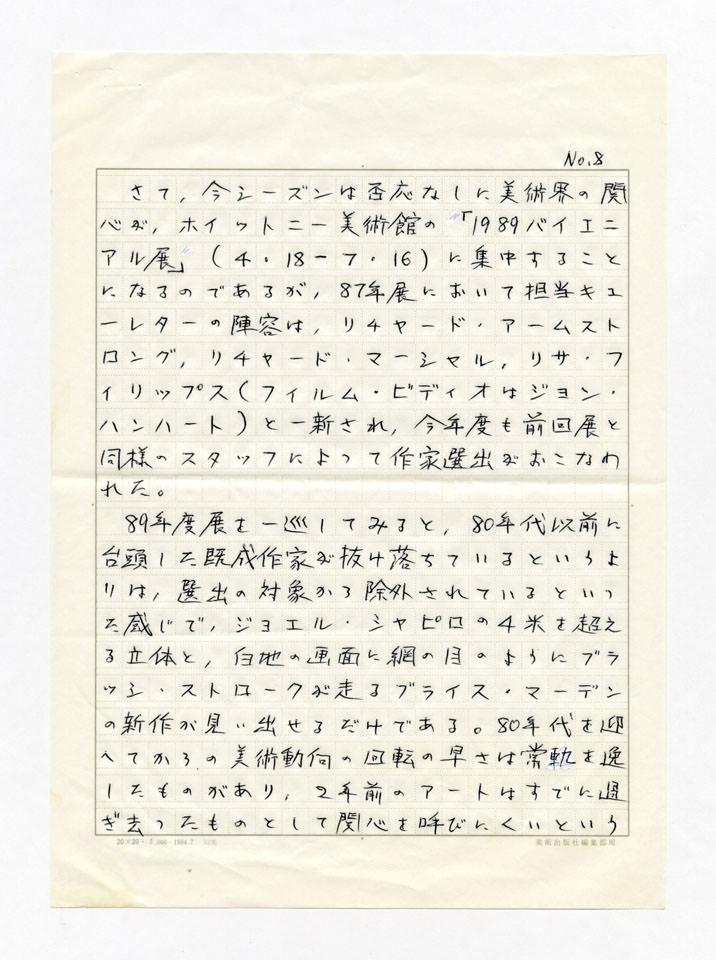 No.8
さて，今シーズンは否応なしに美術界の関
心が，ホイットニー美術館の"「1989バイエニ
アル展」"（4・18－7・16）に集中すること
になるのであるが，87年展において担当キュ
ーレターの陣容は，リチャード・アームスト
ロング，リチャード・マーシャル，リサ・フ
ィリップス（フィルム・ビディオはジョン・
ハンハート）と一新され，今年度も前回展と
同様のスタッフによって作家選出がおこなわ
れた。
89年度展を一巡してみると，80年代以前に
台頭した既成作家が抜け落ちているというよ
りは，選出の対象から除外されているといっ
た感じで，ジョエル・シャピロの4米を超え
る立体と，白地の画面に網の目のようにブラ
ッシ・ストロークが走るブライス・マーデン
の新作が見い出せるだけである。80年代を迎
へてからの美術動向の回転の早さは常軌を逸
したものがあり，2年前のアートはすでに過
ぎ去ったものとして関心を呼びにくいという
20×20
1984.7
美術出版社編集部用